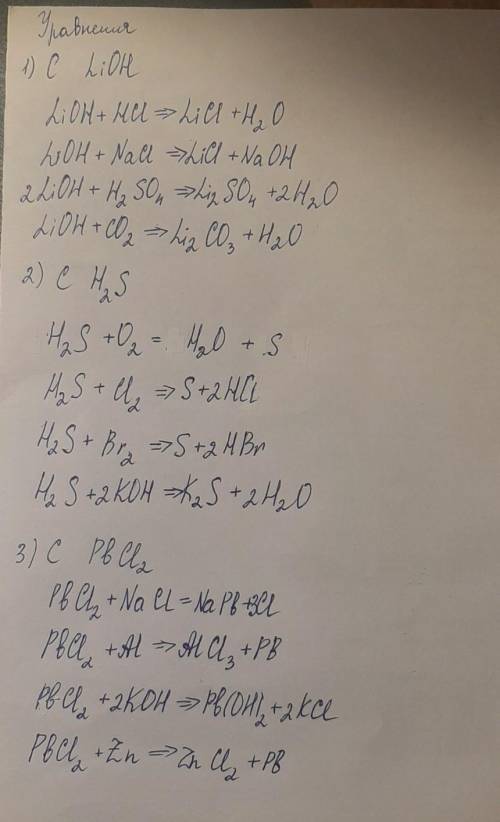 Уравнения
1) С LiOH
LiOH + HCl ⇒ LiCl + H₂O
LiOH + NaCl ⇒ LiCl + NaOH
2LiOH + H₂SO₄ ⇒ Li₂SO₄ + 2H₂O
LiOH + CO₂ ⇒ Li₂CO₃ + H₂O
2) С H₂S
H₂S + O₂ = H₂O + S
H₂S + Cl₂ ⇒ S + 2HCl
H₂S + Br₂ ⇒ S + 2HBr
H₂S + 2KOH ⇒ K₂S + 2H₂O
3) С PbCl₂
PbCl₂ + NaCl = NaPb + 3Cl
PbCl₂ + Al ⇒ AlCl₃ + Pb
PbCl₂ + 2KOH ⇒ Pb(OH)₂ + 2KCl
PbCl₂ + Zn ⇒ ZnCl₂ + Pb